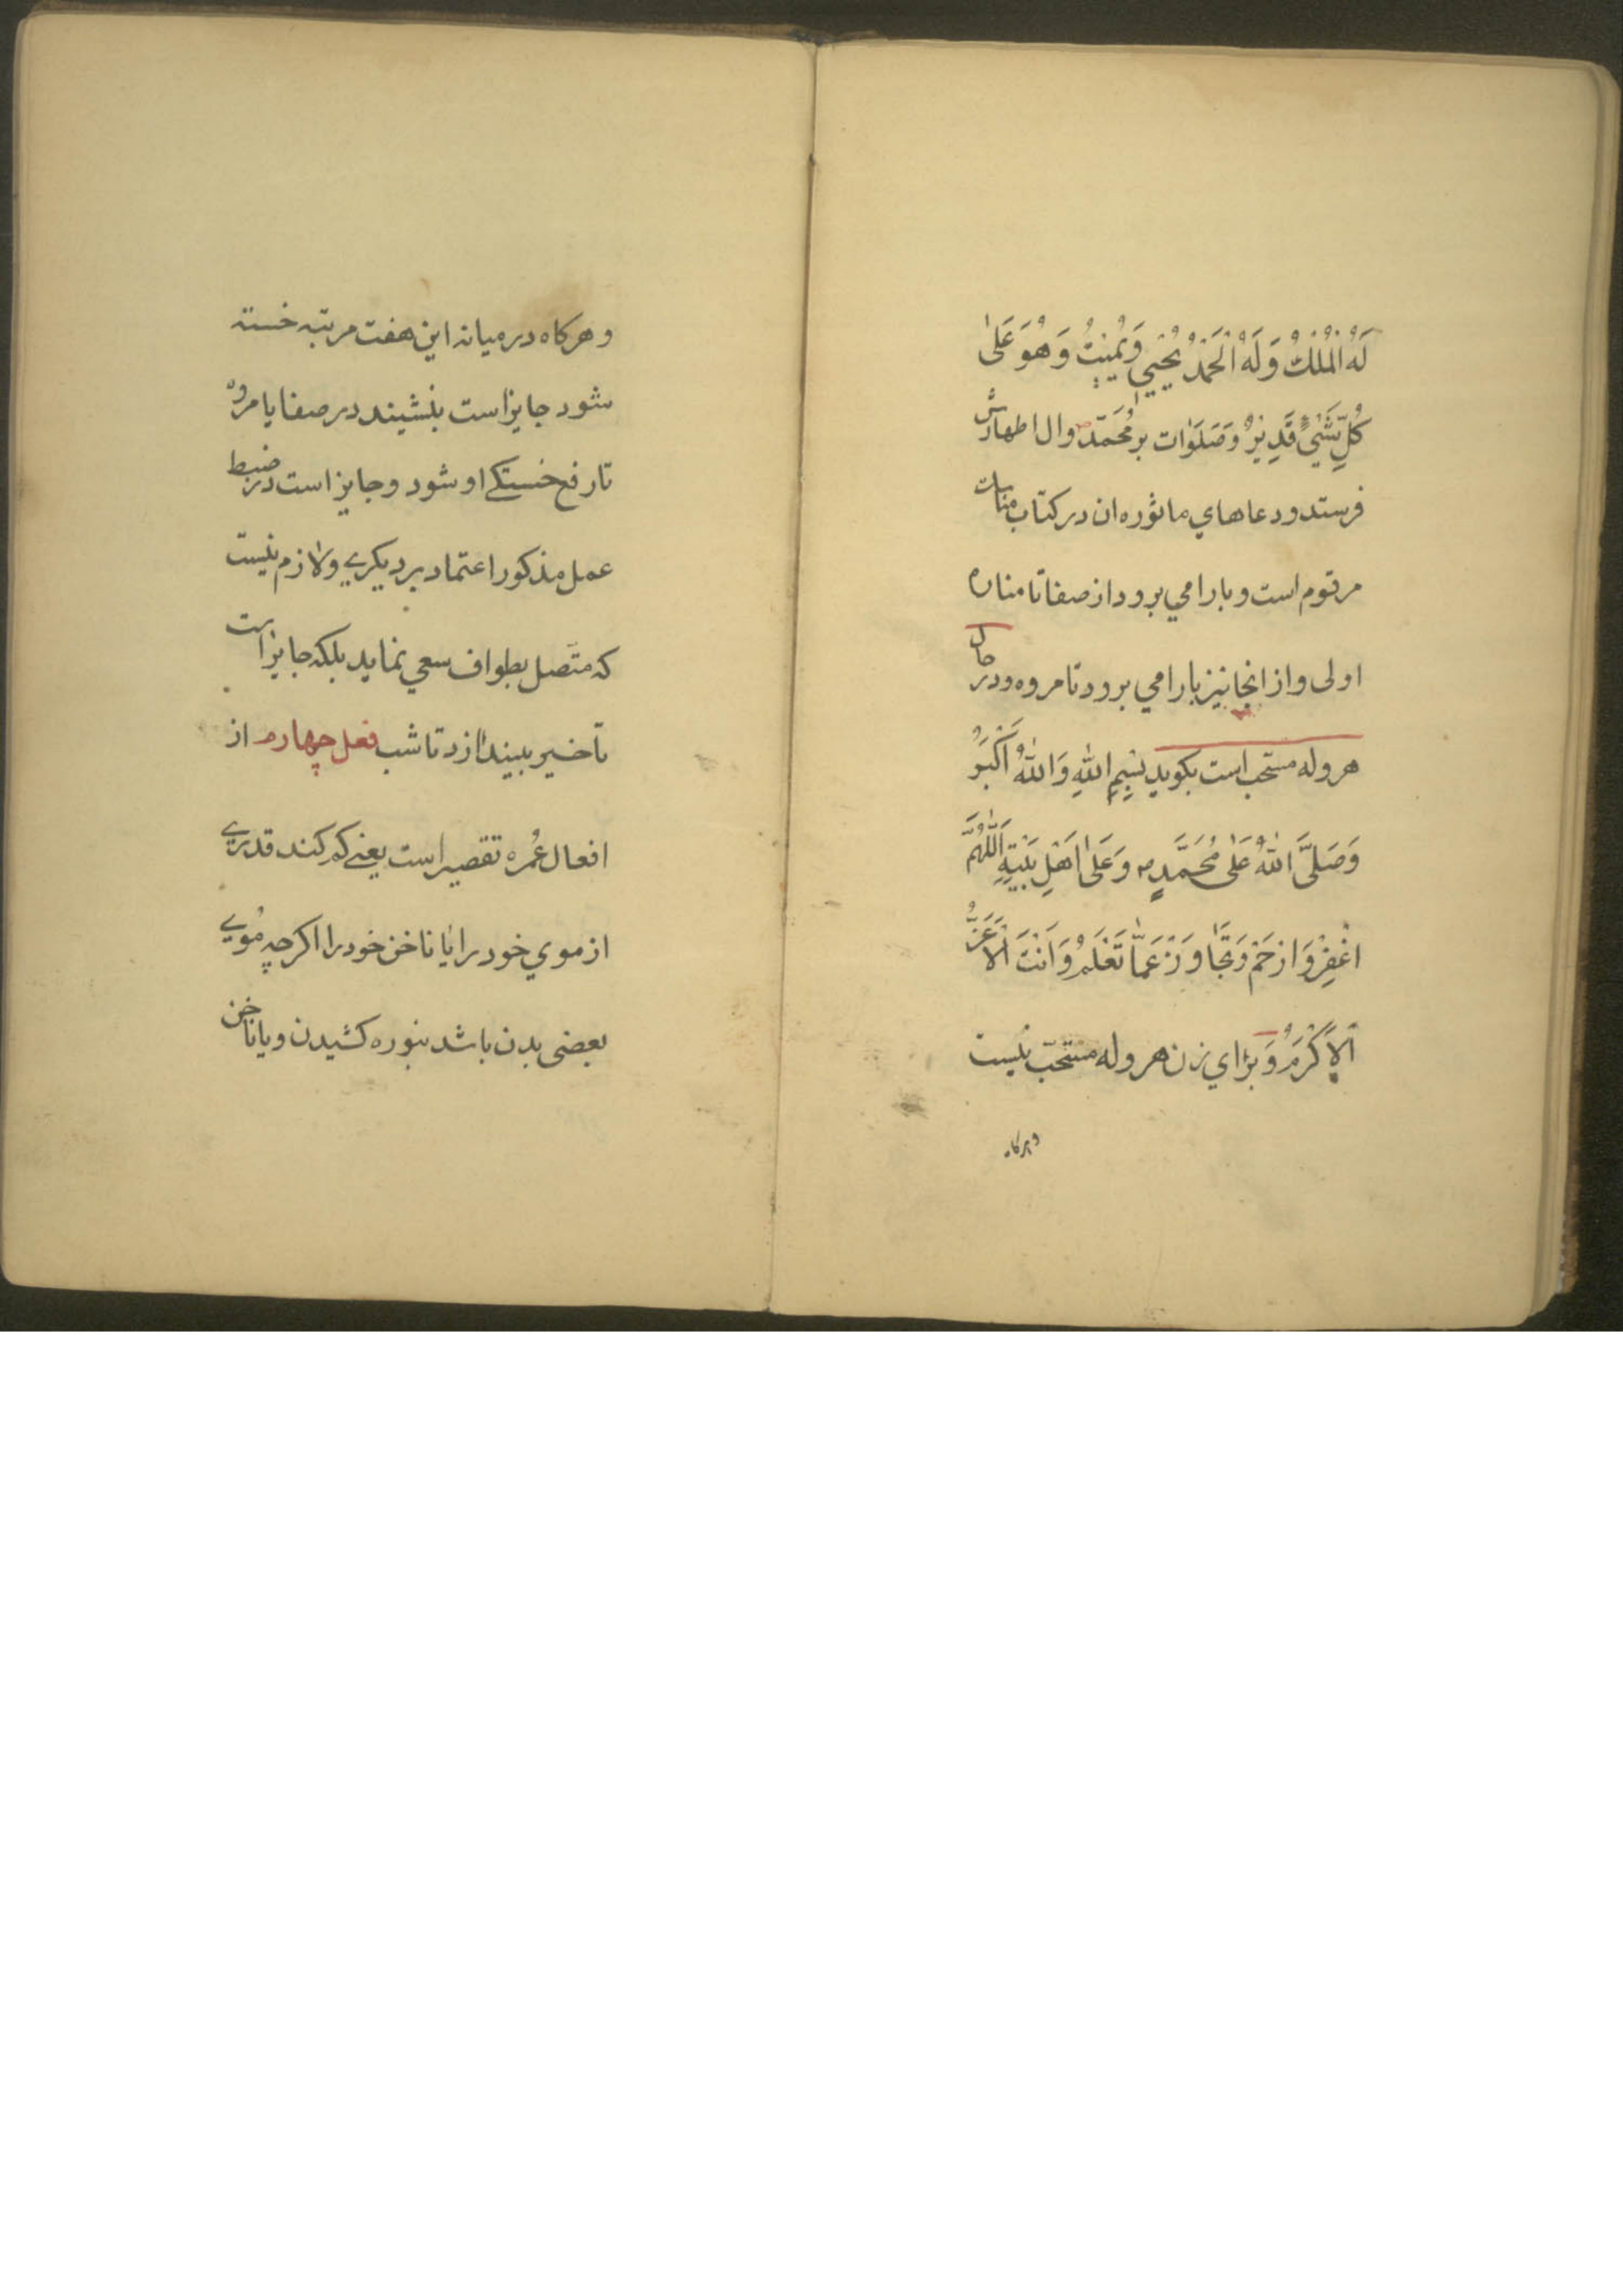 لَهُ الْمُلْكُ وَلَهُ الْحَمْدُ يُحْيِي وَيُمِيتُ وَهُوَ عَلىٰ
كُلِّ شَيْءٍ قَدِيرٌ وَصَلَوٰات بر مُحَمّد ص وال اطهارش
فرستد و دعاهاي ماثوره ان در كتاب مناسك
مرقوم است و بارامي برود از صفا تا مناره
اولى و از انجا نيز بارامي برود تا مروه و در حال
هروله مستحب است بكويد بِسْمِ اللهِ وَاللهُ اَكْبَرُ
وَصَلَّى اللهُ عَلىٰ مُحَمَّدٍ وَعَلىٰ اَهْلِ بَيْتِهِ اَللّٰهُمَّ
اغْفِرْ وَارْحَمْ وَتَجٰاوَزْ عَمّٰا تَعْلَمُ وَاَنْتَ الْاَعَزُّ
اَلْاَكْرَمُ وَ براي زن هروله مستحبّ نيست
و هركاه
و هركاه در ميانه اين هفت مرتبه خسته
شود جايز است بنشيند در صفا يا مروه
تا رفع خستكے او شود و جايز است در ضبط
عمل مذكور اعتماد بر ديكرے و لازم نيست
كه متّصل بطواف سعي نمايد بلكه جايز است
تأخير بيندازد تا شب فعل چهارم از
افعال عُمره تقصير است يعنے كم كند قدرے
از موي خود را يا ناخن خود را اكرچه مُويے
بعضى بدن باشد بنوره كشيدن و يا ناخن